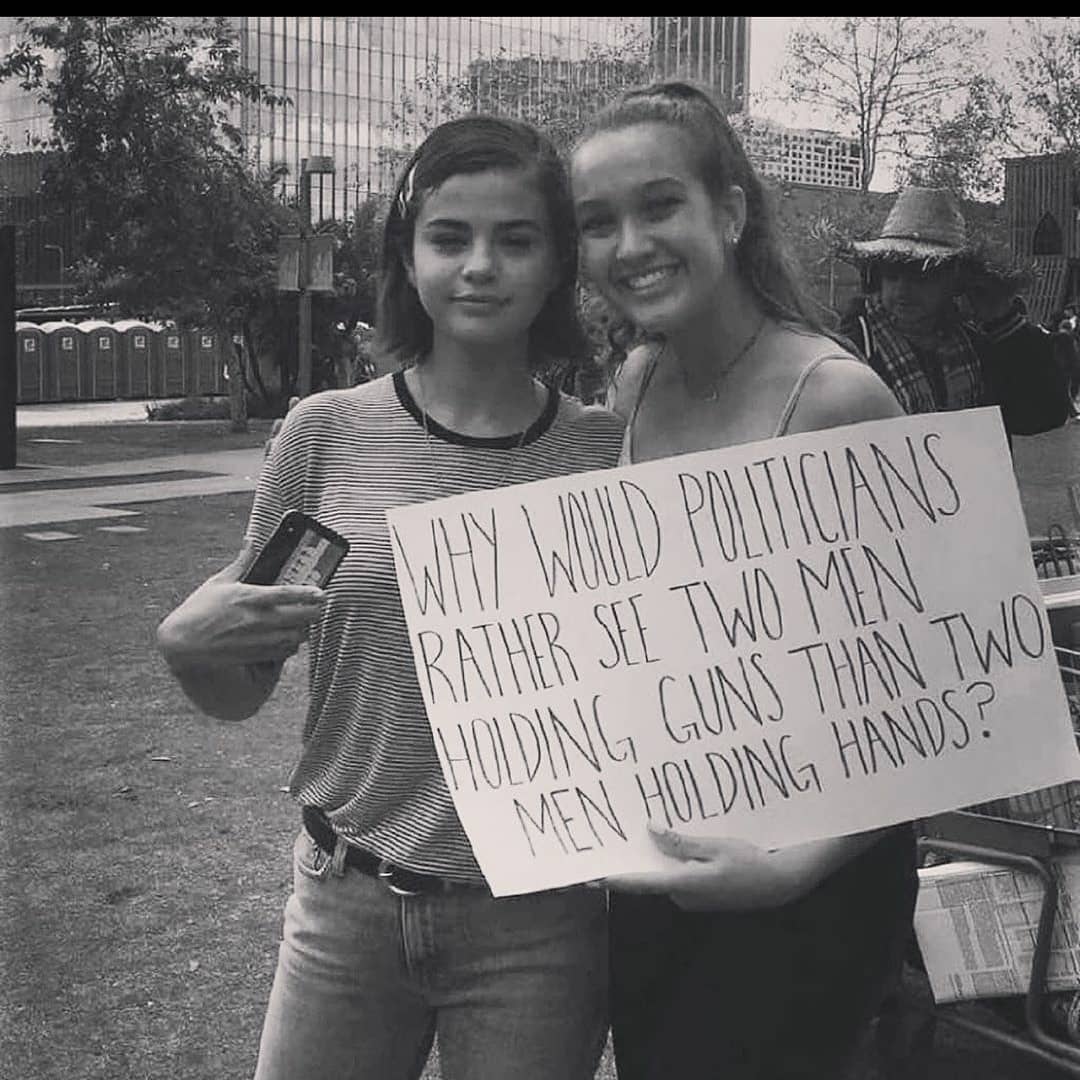 WHY WOULD POLITICIANS
RATHER SEE TWO MEN
HOLDING GUNS THAN TWO
MEN HOLDING HANDS?